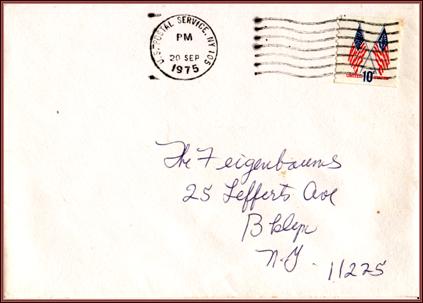 U.S. POSTAL SERVICE, NY 105
PM
20 SEP
1975
10c
The Feigenbaums
25 Lefferts Ave
Bklyn
N.Y. 11225